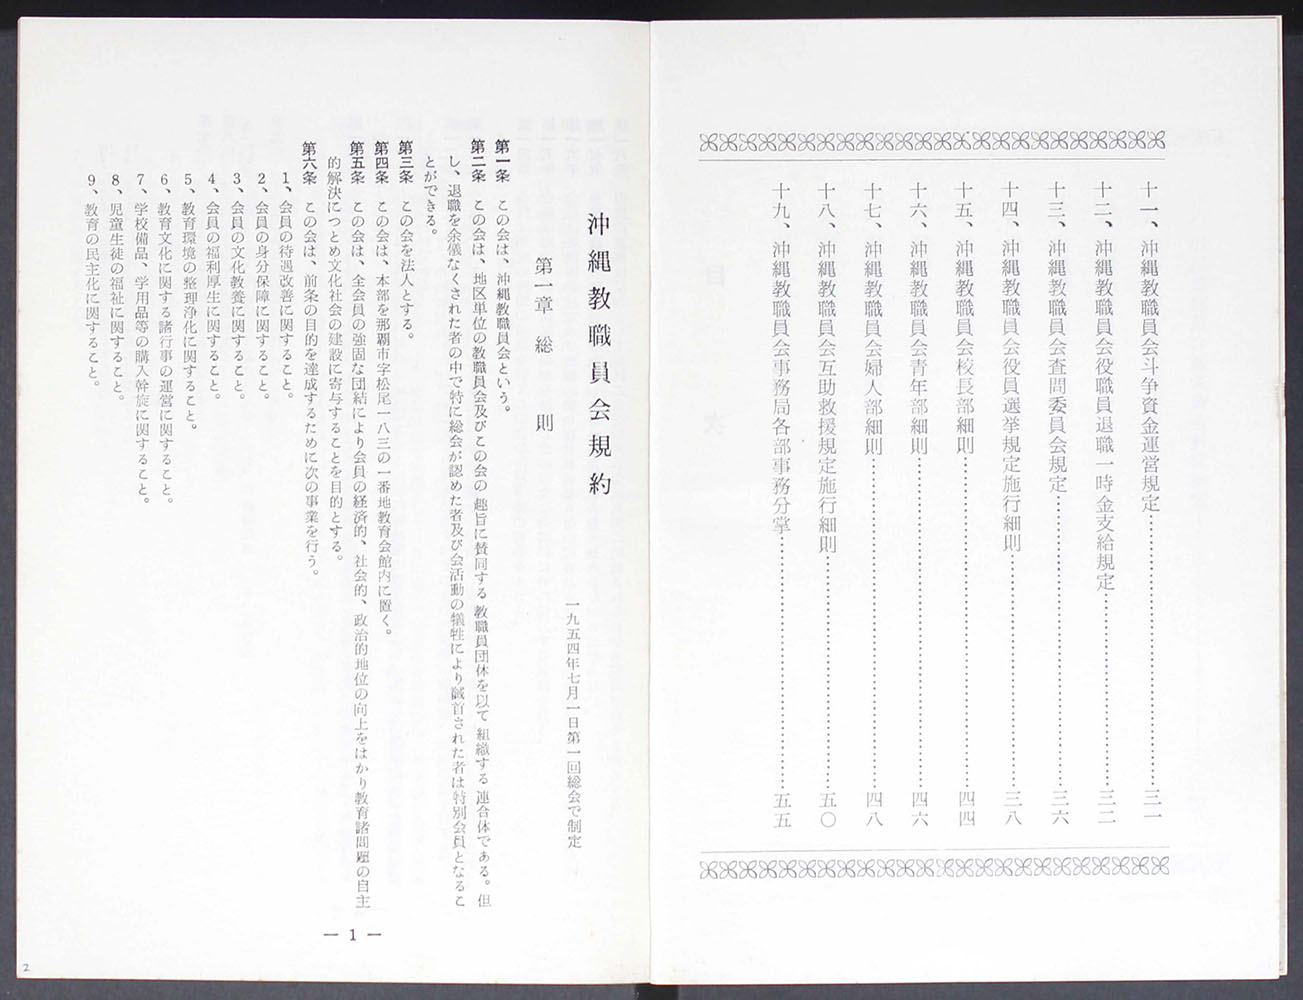 十一、沖縄教職員会斗争資金運営規定……………………三一
十二、沖縄教職員会役職員退職一時金支給規定……………………三二
十三、沖縄教職員会査問委員会規定……………………三六
十四、沖縄教職員会役員選挙規定施行細則……………………三八
十五、沖縄教職員会校長部細則……………………四四
十六、沖縄教職員会青年部細則……………………四六
十七、沖縄教職員会婦人部細則……………………四八
十八、沖縄教職員会互助救援規定施行細則……………………五〇
十九、沖縄教職員会事務局各部事務分掌……………………五五
沖縄教職員会規約
一九五四年七月一日第一回総会で制定
第一章 総則
第一条 この会は、沖縄教職員会という。
第二条 この会は、地区単位の教職員会及びこの会の趣旨に賛同する教職員団体を以て組織する連合体である。但
し、退職を余儀なくされた者の中で特に総会が認めた者及び会活動の犠牲により馘首された者は特別会員となるこ
とができる。
第三条 この会を法人とする。
第四条 この会は、本部を那覇市字松尾一八三の一番地教育会館内に置く。
第五条 この会は、全会員の強固な団結により会員の経済的、社会的、政治的地位の向上をはかり教育諸問題の自主
的解決につとめ文化社会の建設に寄与することを目的とする。
第六条 この会は、前条の目的を達成するために次の事業を行う。
1、会員の待遇改善に関すること。
2、会員の身分保障に関すること。
3、会員の文化教養に関すること。
4、会員の福利厚生に関すること。
5、教育環境の整理浄化に関すること。
6、教育文化に関する諸行事の運営に関すること。
7、学校備品、学用品等の購入斡旋に関すること。
8、児童生徒の福祉に関すること。
9、教育の民主化に関すること。
— 1 —
2